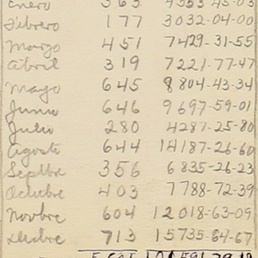 Enero 363 4353-45-03
Febrero 177 3032-04-00
Março 451 7429-31-55
Abril 319 7221-77-47
Mayo 645 8804-43-34
Junio 646 9697-59-01
Julio 280 4287-25-80
Agosto 644 14187-26-60
Septbre 356 6835-26-23
Octubre 403 7788-72-39
Novbre 604 12018-63-09
Dicbre 713 15735-64-67